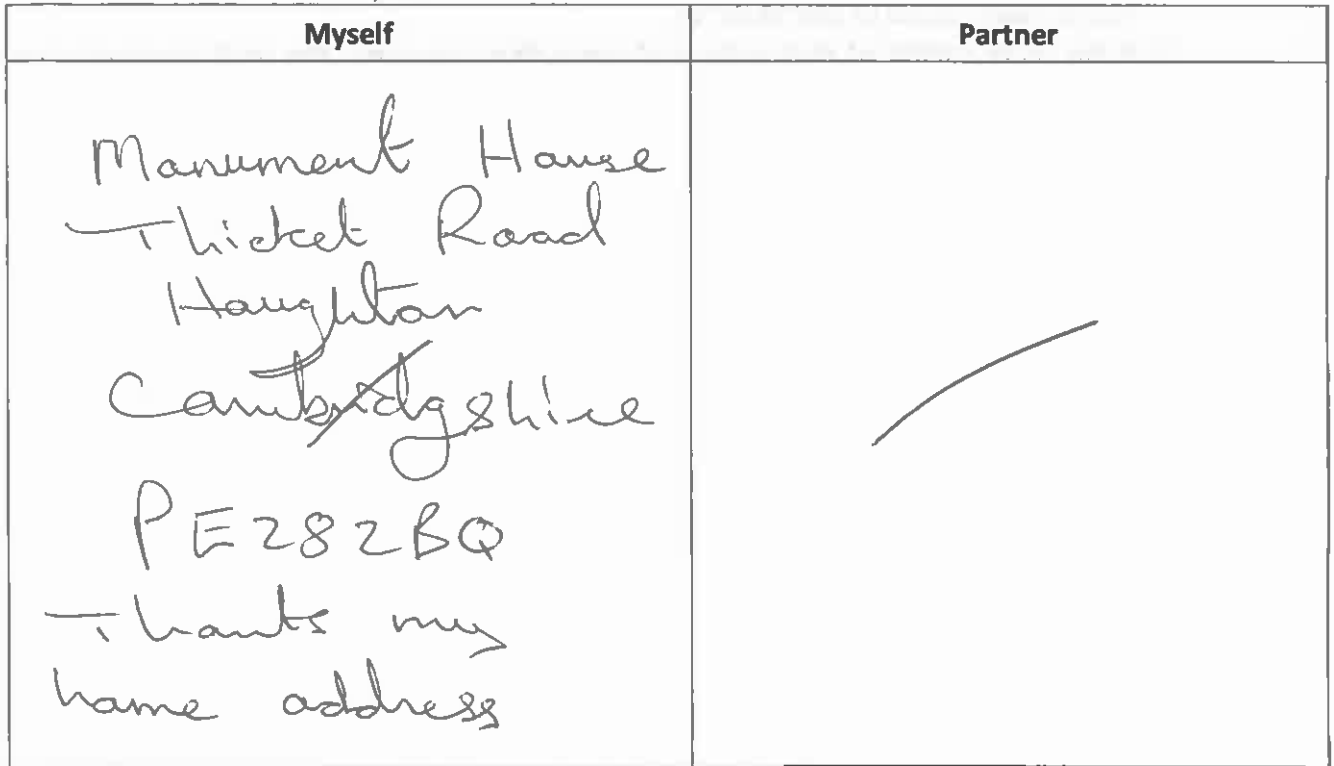 Myself
Partner
Monument House
Thicket Road
Houghton
Cambridgshire
PE282BQ
Thants my
home address